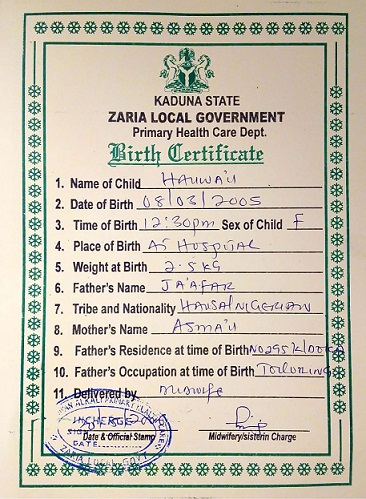 KADUNA STATE
ZARIA LOCAL GOVERNMENT
Primary Health Care Dept.
Birth Certificate
1. Name of Child HAUWA'U
2. Date of Birth 08/03/2005
3. Time of Birth 12:30pm Sex of Child F
4. Place of Birth At Hospital
5. Weight at Birth 2.5kg
6. Father's Name JA'AFAR
7. Tribe and Nationality HAUSA/NIGERIAN
8. Mother's Name ASMA'U
9. Father's Residence at time of Birth NO295
10. Father's Occupation at time of Birth TAILORING
11. Delivered by midwife
DATE
Date & Official Stamp Midwifery/sisterin Charge
ZARIA LOCAL GOVT